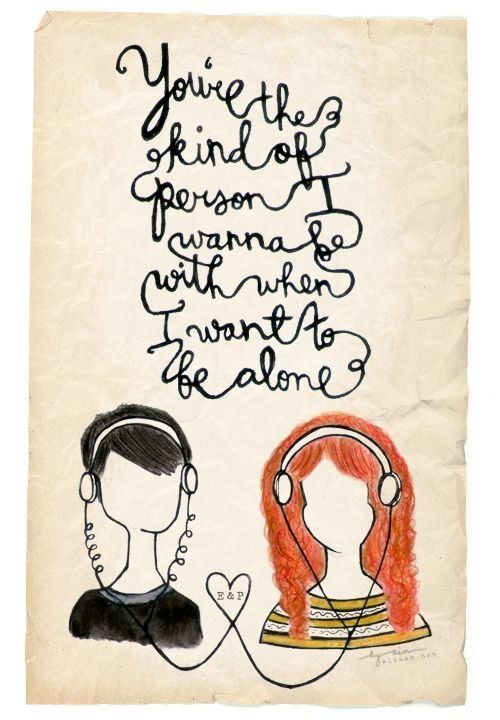 You're the
kind of
person I
wanna be
with when
I want to
be alone
E & P
by aia